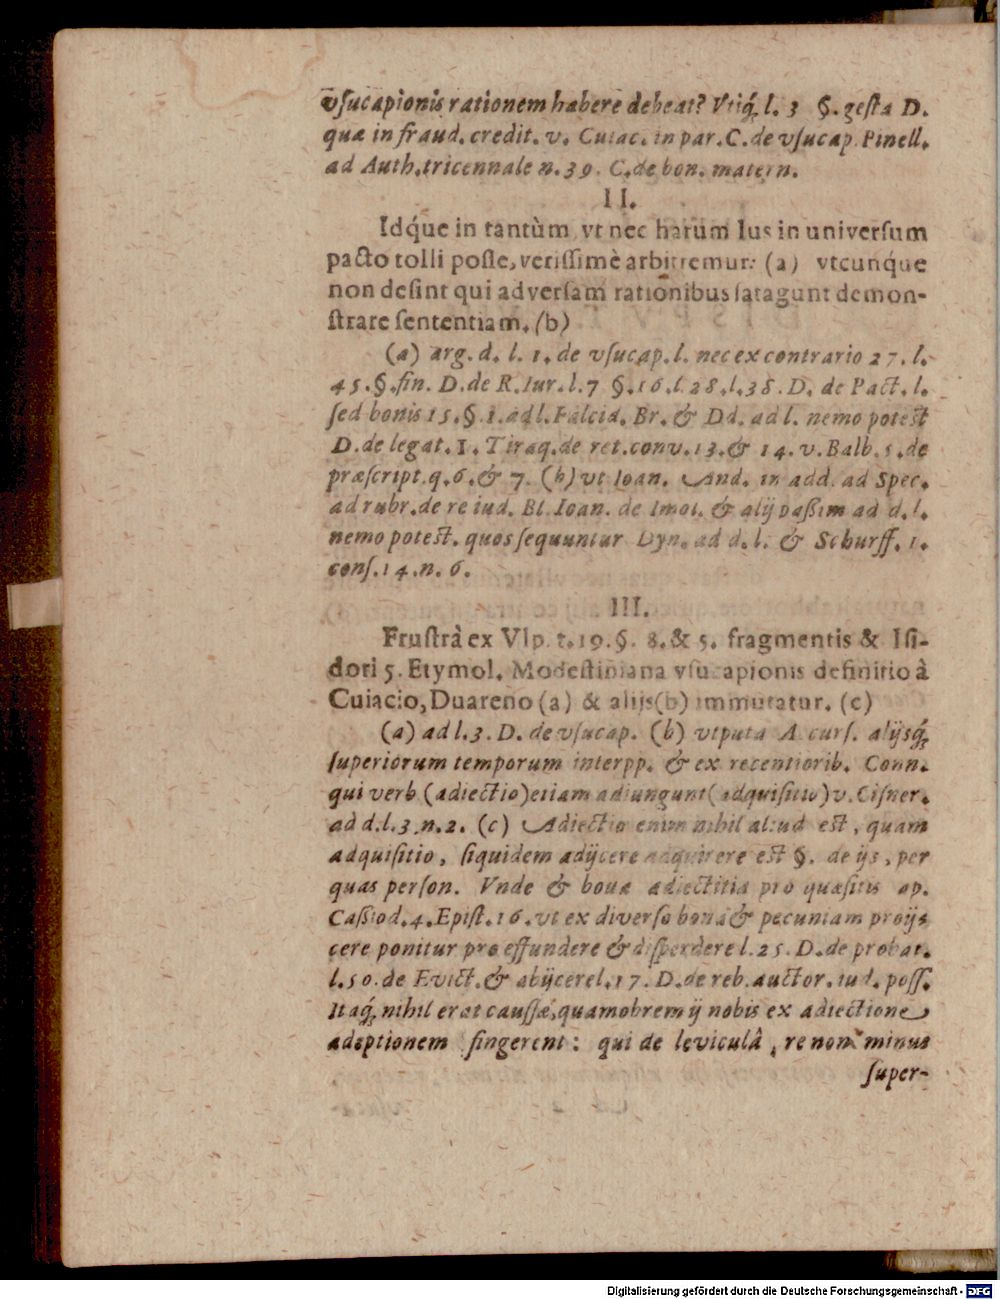 vſucapionis rationem habere debeat? Vtiq́; l. 3 §. geſta D.
quæ in fraud. credit. v. Cuiac. in par. C. de vſucap. Pinell.
ad Auth. tricennale n. 39. C. de bon. matern.
II.
Idq́ue in tantùm vt nec harum Ius in univerſum
pacto tolli poſſe, veriſſimè arbitremur: (a) vtcunq́ue
non deſint qui adverſam rationibus ſatagunt demon-
ſtrare ſententiam. (b)
(a) arg. d. l. 1. de vſucap. l. nec ex contrario 27. l.
45. §. fin. D. de R. Iur. l. 7 §. 16. l. 28. l. 38. D. de Pact. l.
ſed bonis 15. §. 1. ad l. Falcid. Br. & Dd. ad l. nemo poteſt
D. de legat. 1. Tiraq. de ret. conv. 13. & 14. v. Balb. 5. de
præſcript. q. 6. & 7. (b) vt Ioan. And. in add. ad Spec.
ad rubr. de re iud. Bl. Ioan. de Imol. & alij paßim ad d. l.
nemo poteſt. quos ſequuntur Dyn. ad d. l. & Schurff. 1.
conſ. 14. n. 6.
III.
Fruſtrà ex Vlp. t. 19. §. 8. & 5. fragmentis & Iſi-
dori 5. Etymol. Modeſtiniana vſucapionis definitio à
Cuiacio, Duareno (a) & alijs (b) immutatur. (c)
(a) ad l. 3. D. de vſucap. (b) vtputa Accurſ. alijsq́;
ſuperiorum temporum interpp. & ex recentiorib. Conn.
qui verb (adiectio) etiam adiungunt (adquiſitio) v. Ciſner.
ad d. l. 3. n. 2. (c) Adiectio enim nihil aliud eſt, quam
adquiſitio, ſiquidem adijcere adquirere eſt §. de ijs, per
quas perſon. Vnde & bona adiectitia pro quæſitis ap.
Caßiod. 4. Epiſt. 16. vt ex diverſo bona & pecuniam proijs
cere ponitur pro effundere & diſperdere l. 25. D. de probat.
l. 50. de Evict. & abijcere l. 17. D. de reb. auctor. iud. poſſ.
Itaq́; nihil erat cauſſæ, quamobrem ij nobis ex adiectione
adeptionem fingerent: qui de leviculâ, re non minus
ſuper-
Digitalisierung gefördert durch die Deutsche Forschungsgemeinschaft - DFG